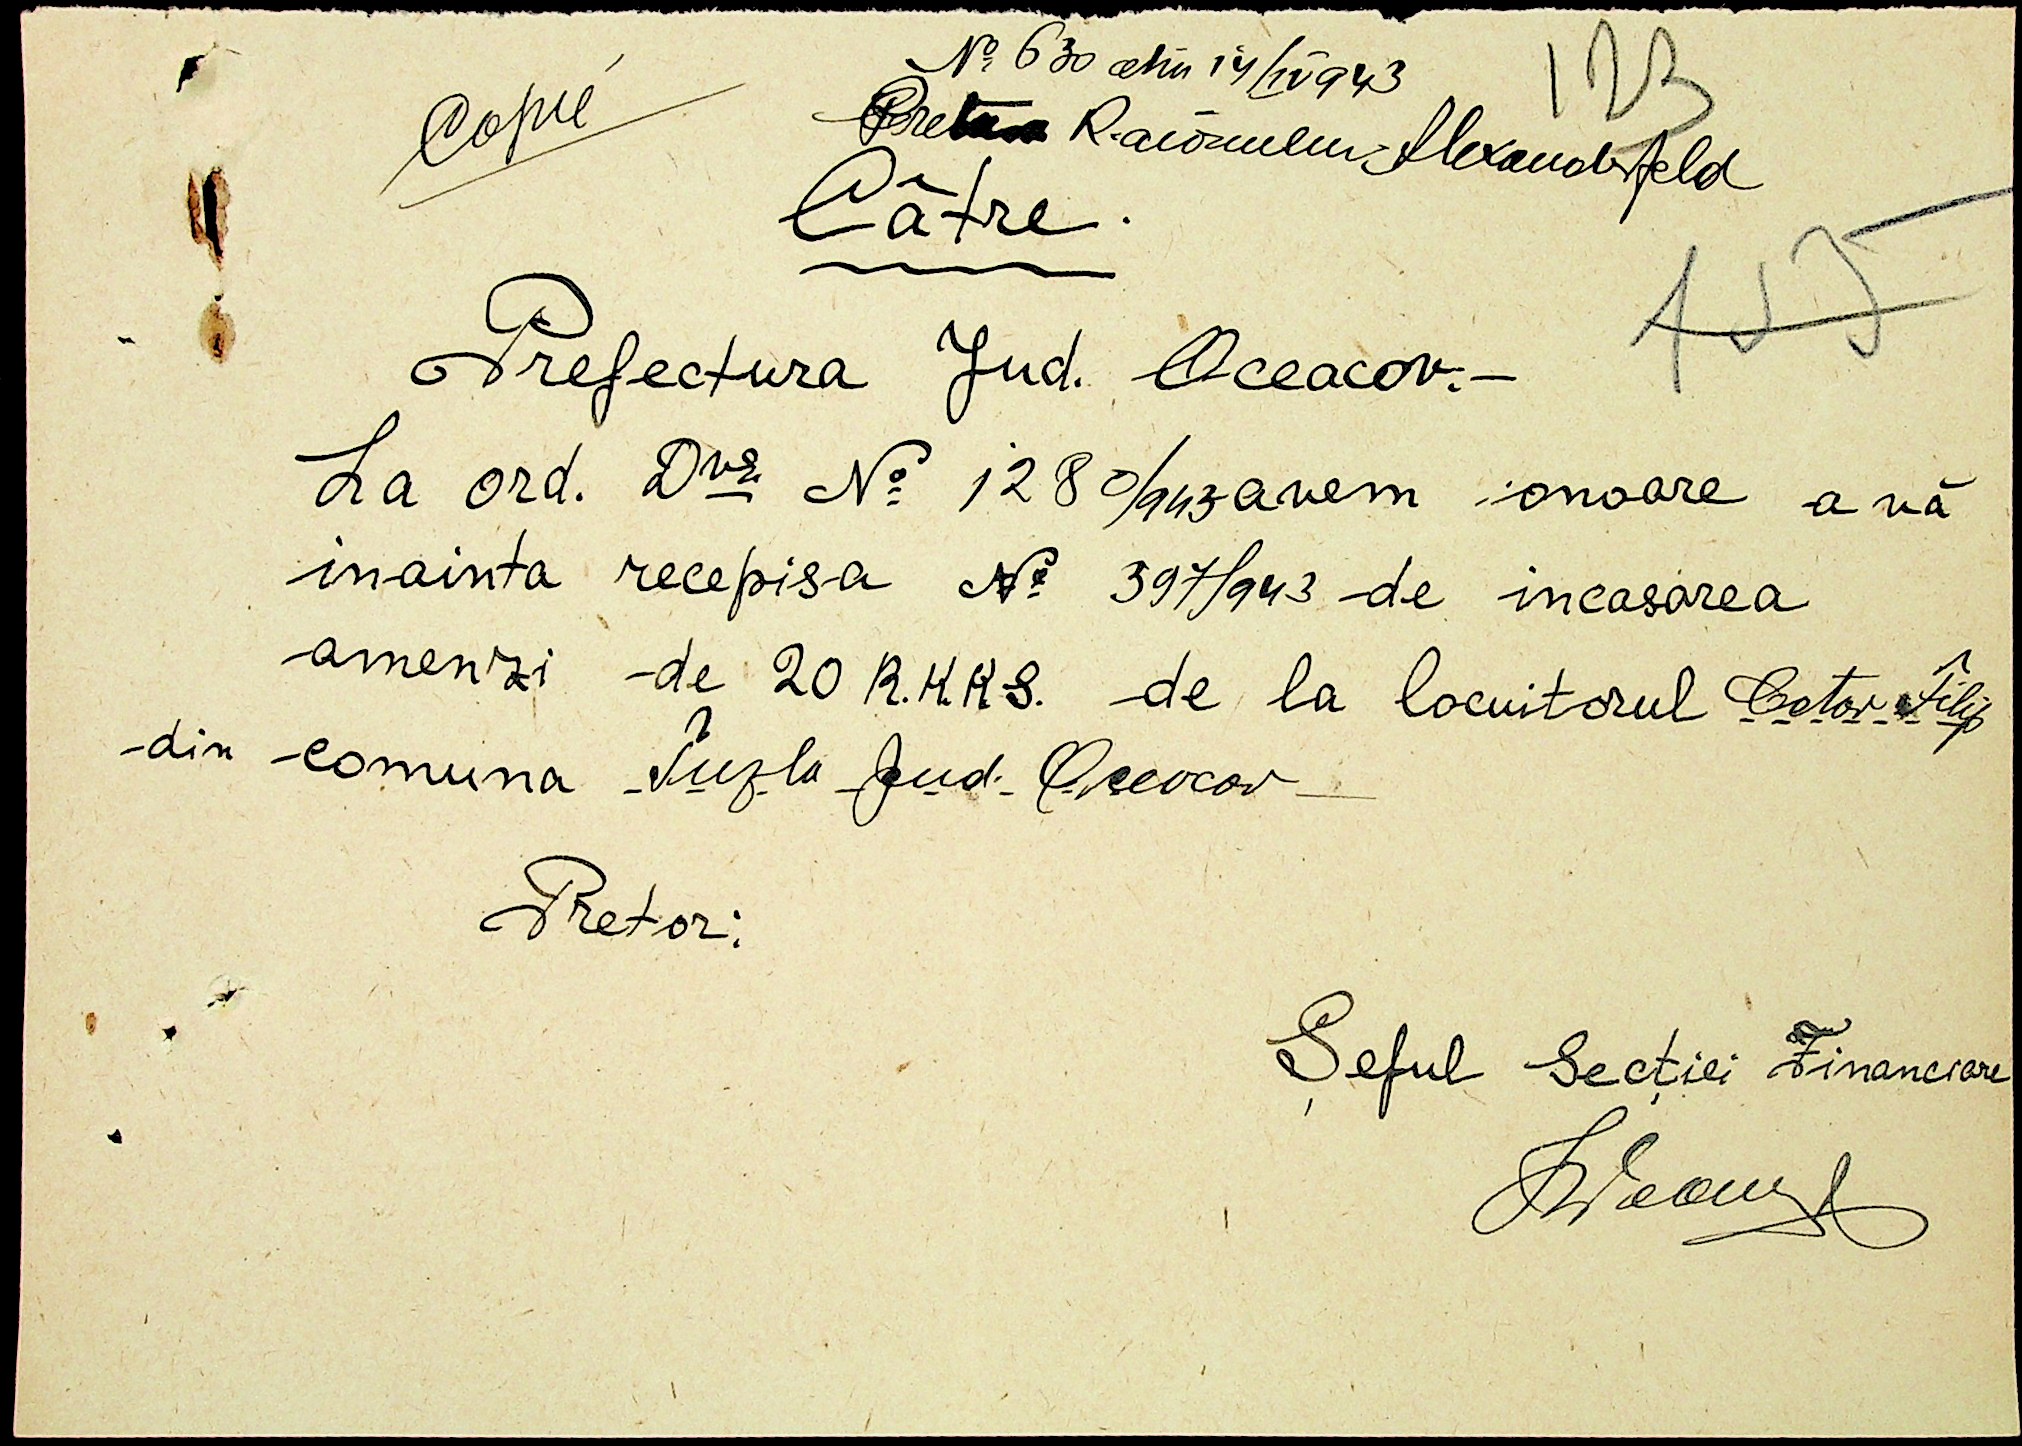 Nº 630 din 14/IV 943
123
Copie
Pretura Raionului Alexanderfeld
Către.
125
Prefectura Jud. Oceacov.-
La ord. Dvs. Nº 1280/943 avem onoare a vă
inainta recepisa Nº 397/943 de incasarea
amenzi de 20 R.K.K.S. de la locuitorul Cotov Filip
din comuna Tuzla Jud. Oceacov
Pretor:
Șeful Secției Financiare